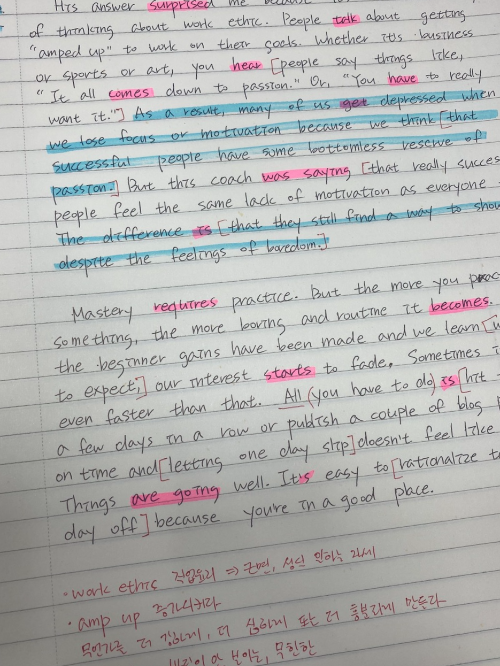 His answer surprised me because
of thinking about work ethic. People talk about getting
"amped up" to work on their goals. Whether it's business
or sports or art, you hear [people say things like,
"It all comes down to passion." Or, "You have to really
want it."] As a result, many of us get depressed when
we lose focus or motivation because we think [that
successful people have some bottomless reserve of
passion.] But this coach was saying [that really succes
people feel the same lack of motivation as everyone
The difference is [that they still find a way to show
despite the feelings of boredom.]
Mastery requires practice. But the more you prac
something, the more boring and routine it becomes.
the beginner gains have been made and we learn [w
to expect,] our interest starts to fade. Sometimes i
even faster than that. All (you have to do) is [hit
a few days in a row or publish a couple of blog p
on time and [letting one day slip] doesn't feel like
Things are going well. It's easy to [rationalize t
day off] because you're in a good place.
• work ethic 직업윤리 ⇒ 근면, 성실 일하는 자세
• amp up 증가시키다
무언가를 더 강하게, 더 심하게 또는 더 흥분되게 만들다
보이는, 무한한